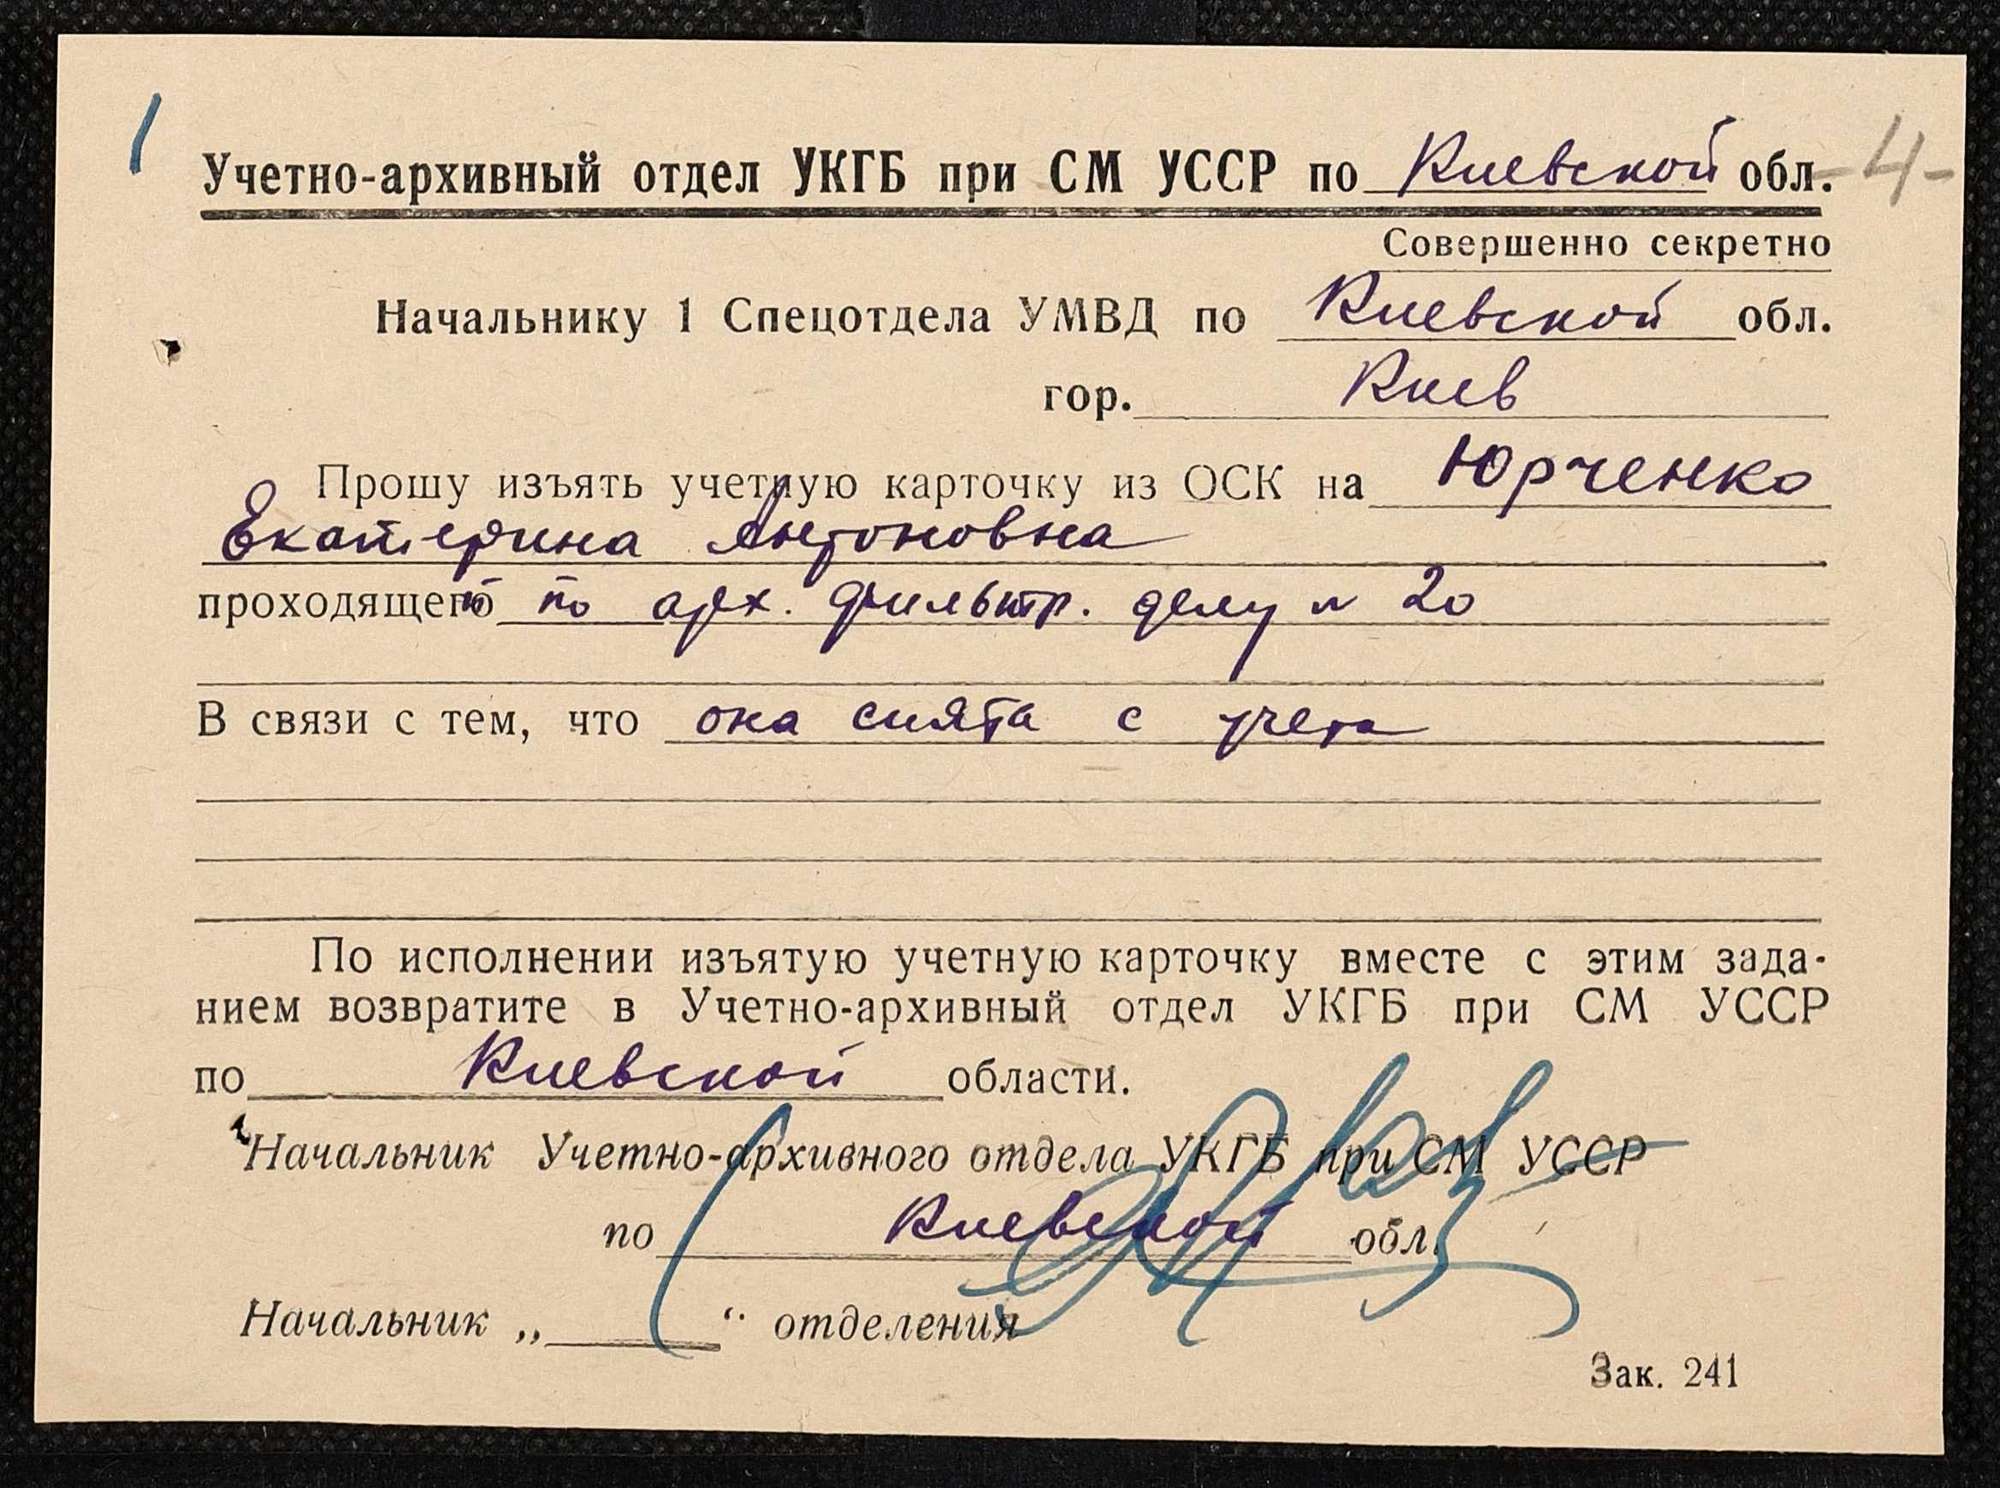 Учетно-архивный отдел УКГБ при СМ УССР по Киевской обл. -4-
Совершенно секретно
Начальнику 1 Спецотдела УМВД по Киевской обл.
гор. Киев
Прошу изъять учетную карточку из ОСК на Юрченко
Екатерина Антоновна
проходящего по арх. фильтр. делу № 20
В связи с тем, что она снята с учета
По исполнении изъятую учетную карточку вместе с этим зада-
нием возвратите в Учетно-архивный отдел УКГБ при СМ УССР
по Киевской области.
Начальник Учетно-архивного отдела УКГБ при СМ УССР
по Киевской обл.
Начальник „ “ отделения
Зак. 241